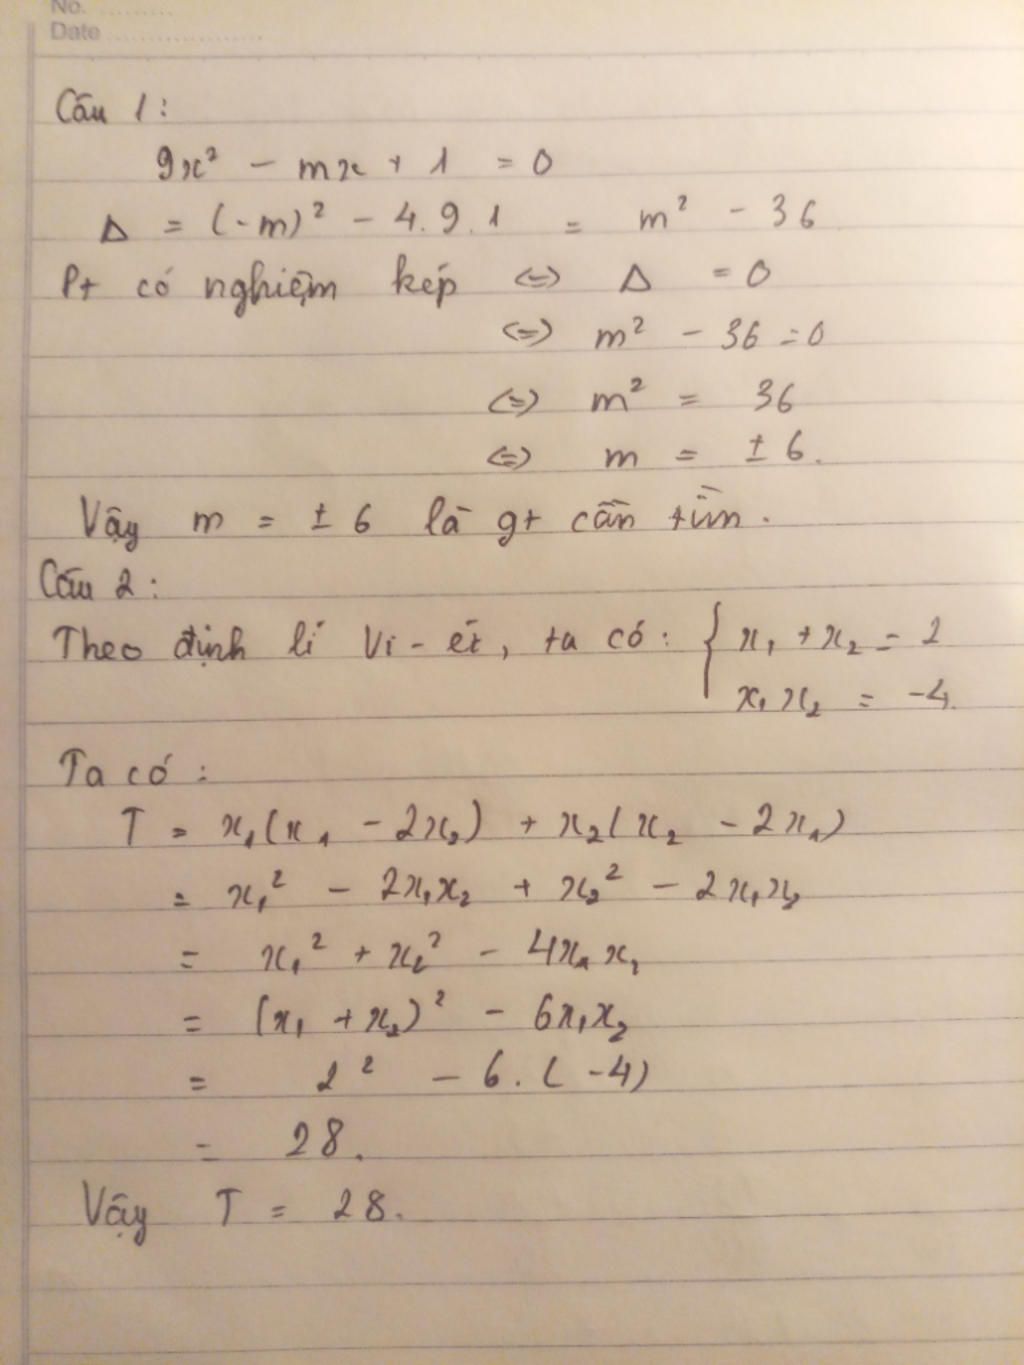 No. ..........
Date ....................
Câu 1:
9x² - mx + 1 = 0
Δ = (-m)² - 4.9.1 = m² - 36
Pt có nghiệm kép <=> Δ = 0
<=> m² - 36 = 0
<=> m² = 36
<=> m = ± 6.
Vậy m = ± 6 là gt cần tìm.
Câu 2:
Theo định lí Vi-ét, ta có: { x₁ + x₂ = 2
x₁x₂ = -4.
Ta có:
T = x₁(x₁ - 2x₂) + x₂(x₂ - 2x₁)
= x₁² - 2x₁x₂ + x₂² - 2x₁x₂
= x₁² + x₂² - 4x₁x₂
= (x₁ + x₂)² - 6x₁x₂
= 2² - 6.(-4)
= 28.
Vậy T = 28.